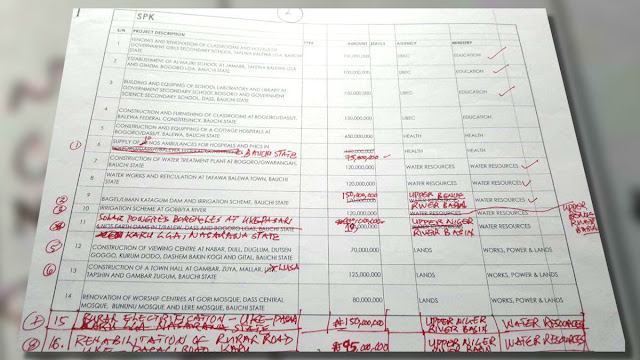 2
SPK
S/N PROJECT DESCRIPTION AMOUNT (NAIRA) AGENCY MINISTRY
1 FENCING AND RENOVATION OF CLASSROOMS AND HOSTELS OF
GOVERNMENT GIRLS SECONDARY SCHOOL, TAFAWA BALEWA LGA, BAUCHI
STATE 100,000,000 UBEC EDUCATION
2 ESTABLISHMENT OF ALMAJIRI SCHOOL AT JAMA'AR, TAFAWA BALEWA LGA
AND GWADIA, BOGORO LGA, BAUCHI STATE 100,000,000 UBEC EDUCATION
3 BUILDING AND EQUIPING OF SCHOOL LABORATORY AND LIBRARY AT
GOVERNMENT SECONDARY SCHOOL, BOGORO AND GOVERNMENT
SCIENCE SECONDARY SCHOOL, DASS, BAUCHI STATE 100,000,000 UBEC EDUCATION
4 CONSTRUCTION AND FURNISHING OF CLASSROOMS AT BOGORO/DASS/T.
BALEWA FEDERAL CONSTITUENCY, BAUCHI STATE 120,000,000 UBEC
5 CONSTRUCTION AND EQUIPPING OF A COTTAGE HOSPITALS AT
BOGORO/DASS/T. BALEWA, BAUCHI STATE 650,000,000 HEALTH HEALTH
1 6 SUPPLY OF NOS AMBULANCES FOR HOSPITALS AND PHCS IN
BAUCHI STATE 75,000,000 HEALTH HEALTH
7 CONSTRUCTION OF WATER TREATMENT PLANT AT BOGORO/GWARANGAH,
BAUCHI STATE 120,000,000 WATER RESOURCES WATER RESOURCES
8 WATER WORKS AND RETICULATION AT TAFAWA BALEWA TOWN, BAUCHI
STATE 120,000,000 WATER RESOURCES WATER RESOURCES
2 9 BAGEL/LIMAN KATAGUM DAM AND IRRIGATION SCHEME, BAUCHI STATE 150,000,000 UPPER BENUE RIVER BASIN WATER RESOURCES
3 10 IRRIGATION SCHEME AT GOBIYA RIVER 120,000,000 WATER RESOURCES WATER RESOURCES
UPPER BENUE RIVER BASIN
SOLAR POWERED BOREHOLES AT
11 KARU LGA, NASARAWA STATE UPPER NIGER RIVER BASIN WATER RESOURCES
5 12 CONSTRUCTION OF VIEWING CENTRE AT NABAR, DULL, DUGLUM, DUTSEN
GOGGO, KURUM DODO, DASHEM BAKIN KOGI AND GITAL, BAUCHI STATE 70,000,000 LANDS WORKS, POWER & LANDS
6 13 CONSTRUCTION OF A TOWN HALL AT GAMBAR, ZUYA, MALLAR, LUSA
TAPSHIN AND GAMBAR ZUGUM, BAUCHI STATE 125,000,000 LANDS WORKS, POWER & LANDS
14 RENOVATION OF WORSHIP CENTRES AT GORI MOSQUE, DASS CENTRAL
MOSQUE, BUNUNU MOSQUE AND LERE MOSQUE, BAUCHI STATE 80,000,000 LANDS WORKS, POWER & LANDS
7 15. RURAL ELECTRIFICATION - UKE-
KARU LGA NASARAWA STATE ₦150,000,000 UPPER NIGER RIVER BASIN WATER RESOURCES
8 16. REHABILITATION OF RURAL ROAD
UKE ROAD KARU ₦95,000,000 UPPER NIGER RIVER BASIN WATER RESOURCES